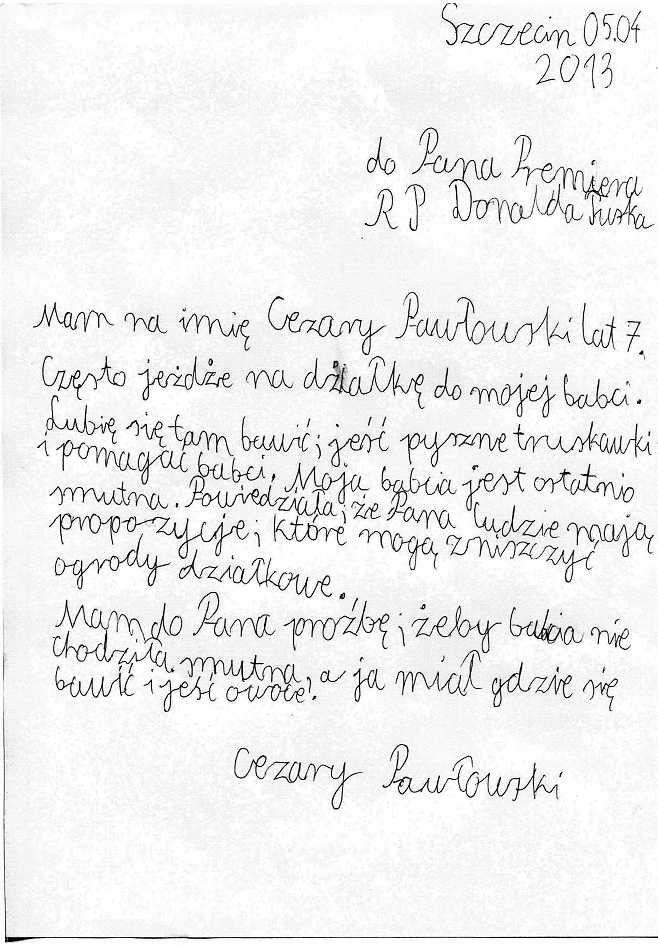 Szczecin 05.04
2013
do Pana Premiera
RP Donalda Tuska
Mam na imię Cezary Pawłowski lat 7.
Często jeżdże na działkę do mojej babci.
Lubię się tam bawić; jeść pyszne truskawki
i pomagać babci. Moja babcia jest ostatnio
smutna. Powiedziała; że Pana ludzie mają
propozycje; które mogą zniszczyć
ogrody działkowe.
Mam do Pana proźbę; żeby babcia nie
chodziła smutna, a ja miał gdzie się
bawić i jeść owoce!
Cezary Pawłowski